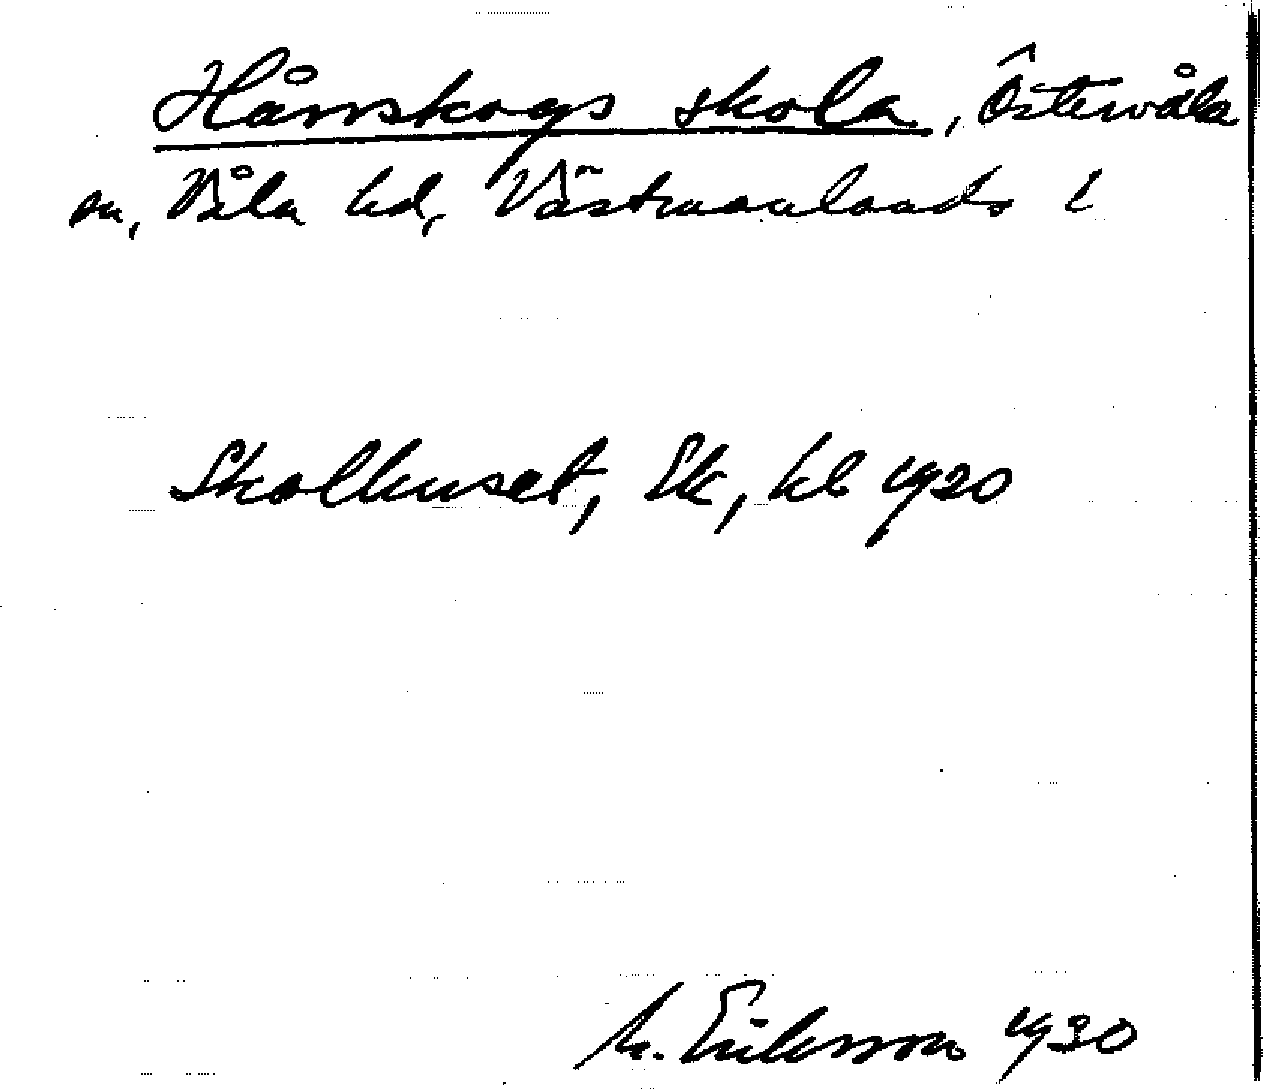 Hånskogs skola, Östervåla
sn, Våla hd, Västmanlands l
Skolhuset, Ek, kl 1920
M. Eriksson 1930